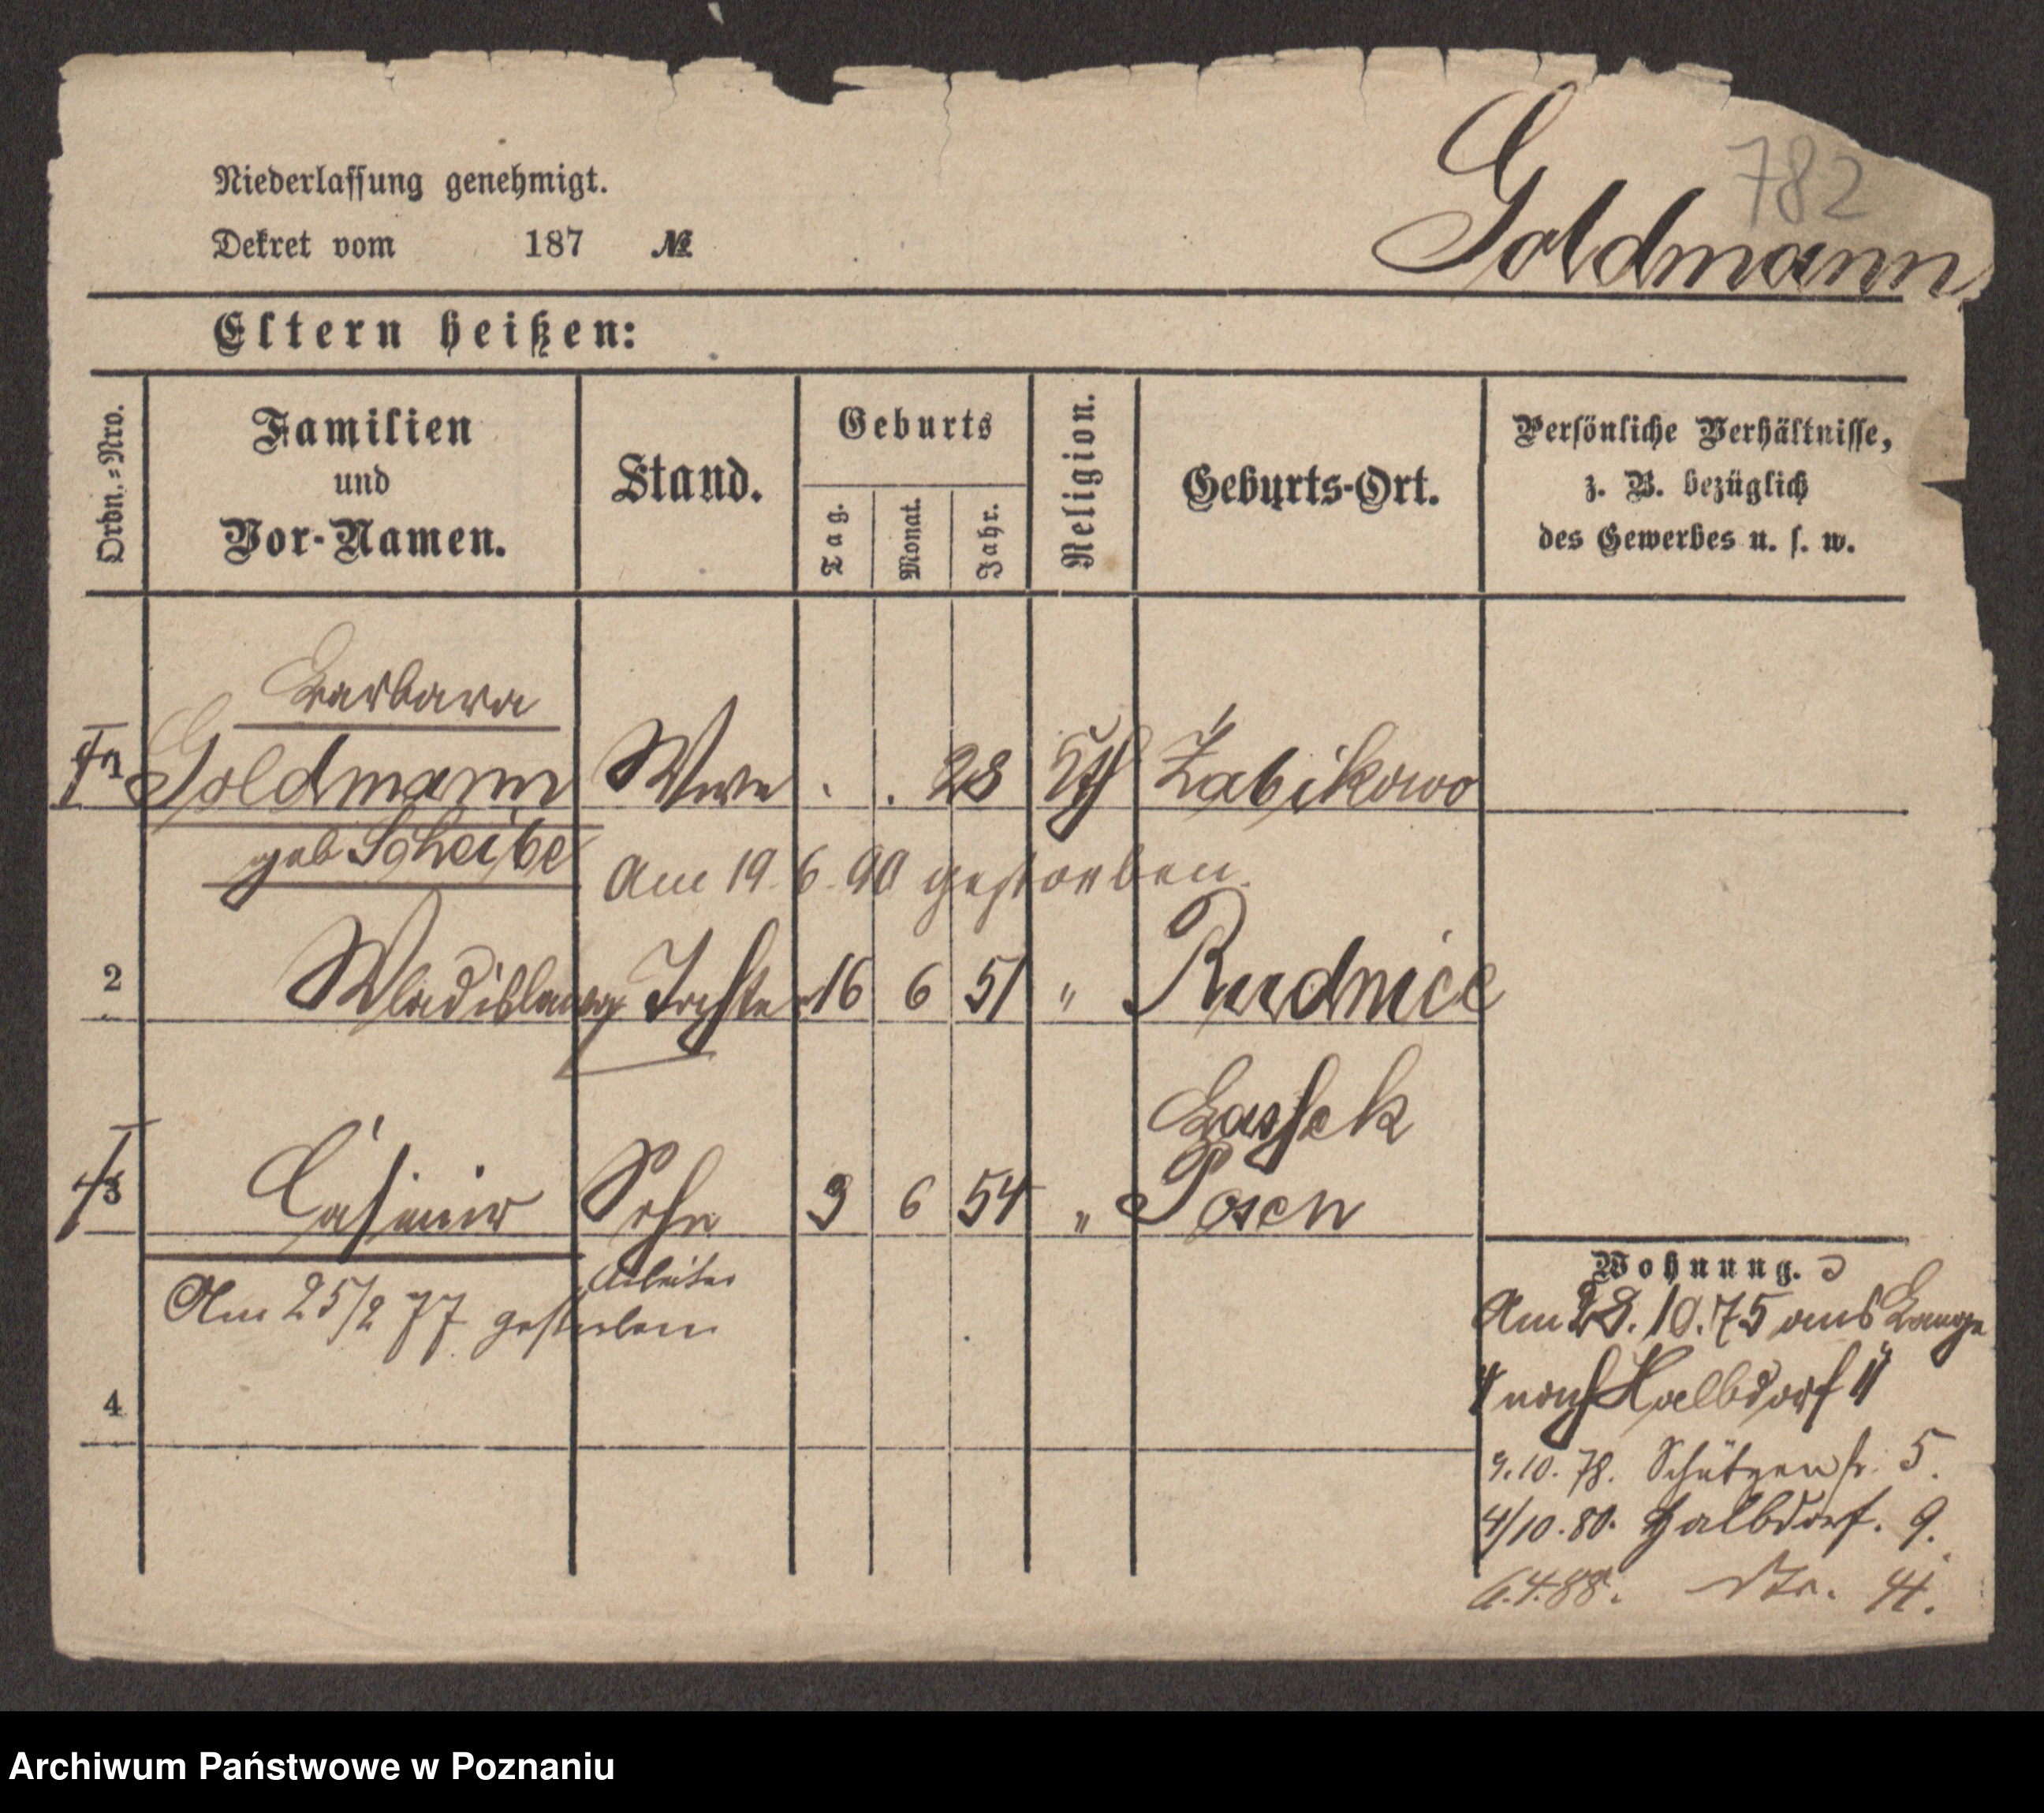 782
Niederlassung genehmigt.
Dekret vom 187 №
Goldmann
Eltern heißen:
Ordn.=Nro.
Familien und Vor-Namen.
Stand.
Geburts
Tag.
Monat.
Jahr.
Religion.
Geburts-Ort.
Persönliche Verhältnisse,
z. B. bezüglich
des Gewerbes u. s. w.
Barbara
Goldmann Wwe . . 28 kth Żabikowo
geb Scheibe
Am 19. 6. 90 gestorben.
2 Wladislawa Tochter 16 6 51 " Rudnice
3 Casimir Sohn 3 6 54 " Posen
Arbeiter
Am 25/2 77 gestorben
4
Wohnung.
Am 28. 10. 75 aus Lange
4 nach Halbdorf 11
9. 10. 78. Schützenstr. 5.
4/10. 80. Halbdorf. 9.
6. 4. 88. Str. 4.
Archiwum Państwowe w Poznaniu